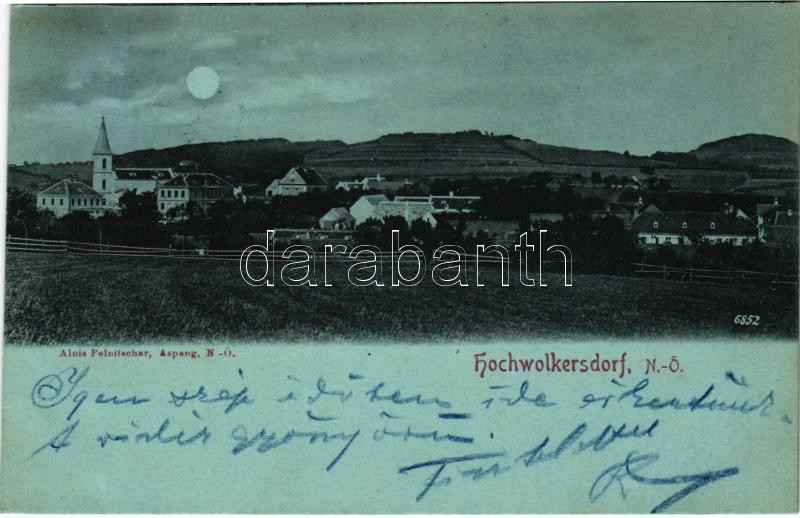 darabanth
6852
Alois Pelnitschar, Aspang, N.-Ö.
Hochwolkersdorf, N.-Ö.
Igen szép időben ide érkeztünk.
A vidék gyönyörű.